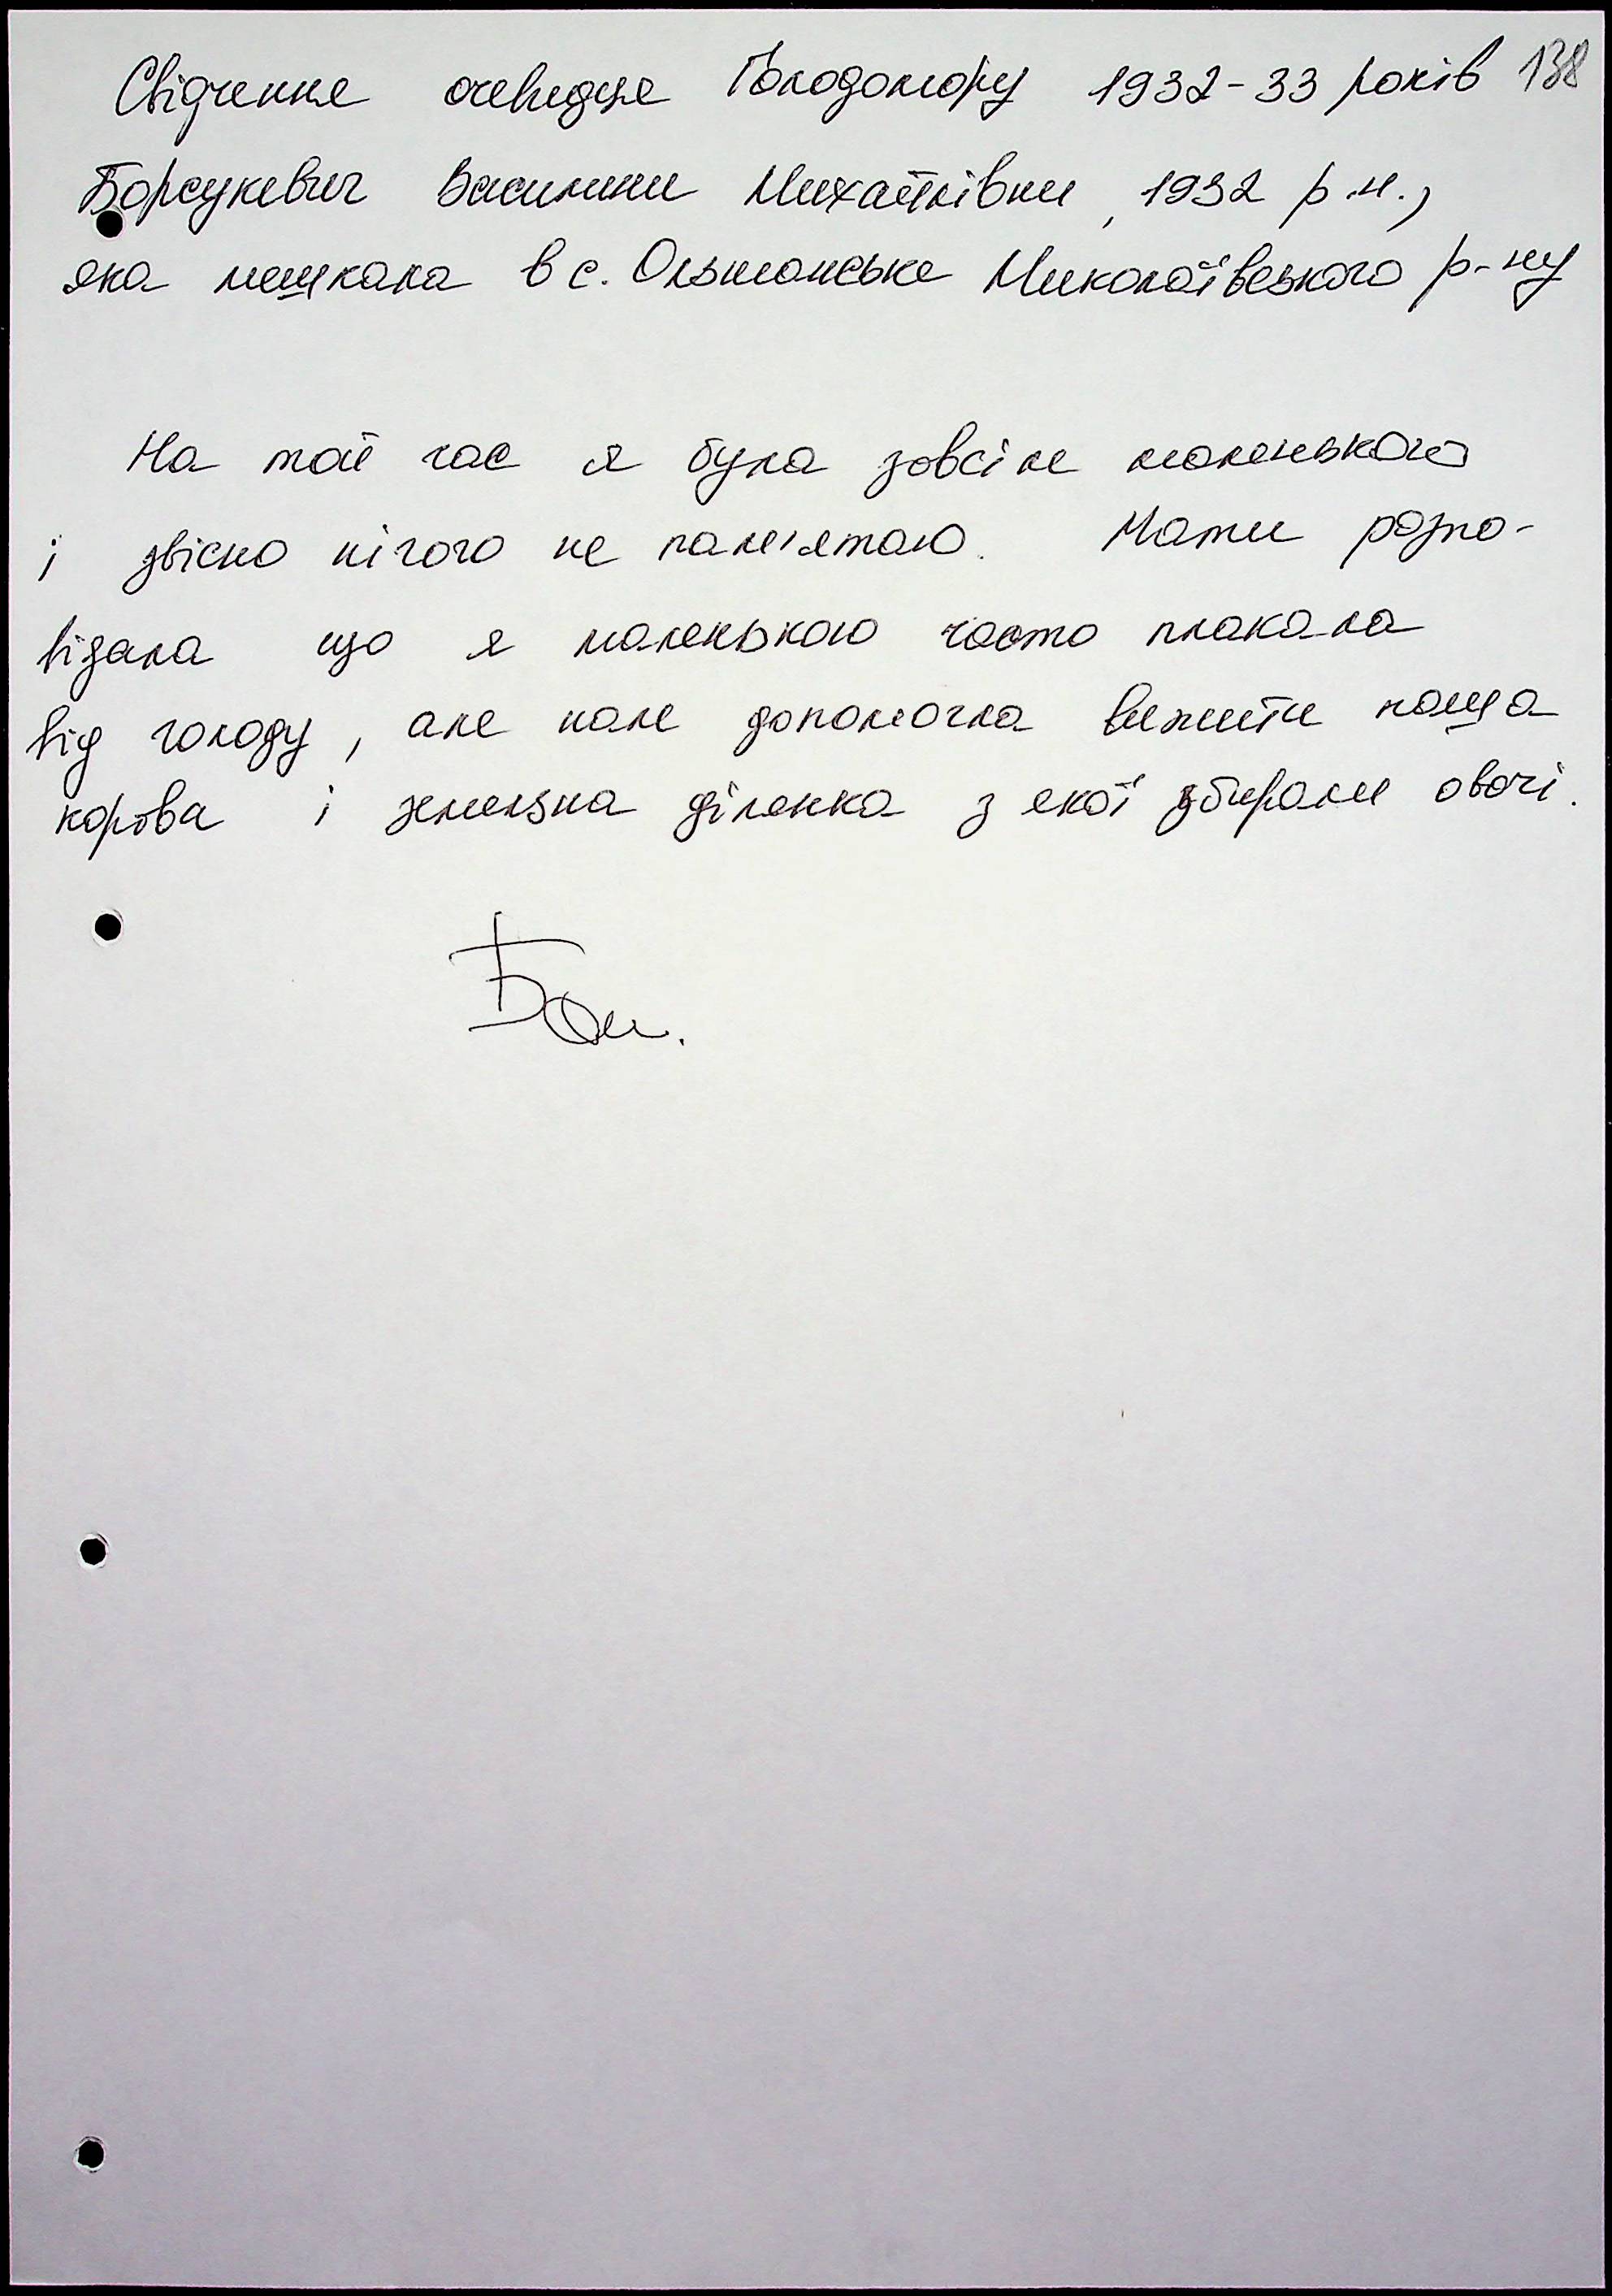 Свідчення очевидця Голодомору 1932-33 років 138
Борсукевич Василини Михайлівни, 1932 р.н.,
яка мешкала в с. Ользонське Миколаївського р-ну
На той час я була зовсім маленькою
і звісно нічого не пам'ятаю. Мати розпо-
відала що я маленькою часто плакала
від голоду, але нам допомогла вижити наша
корова і земельна ділянка з якої збирали овочі.